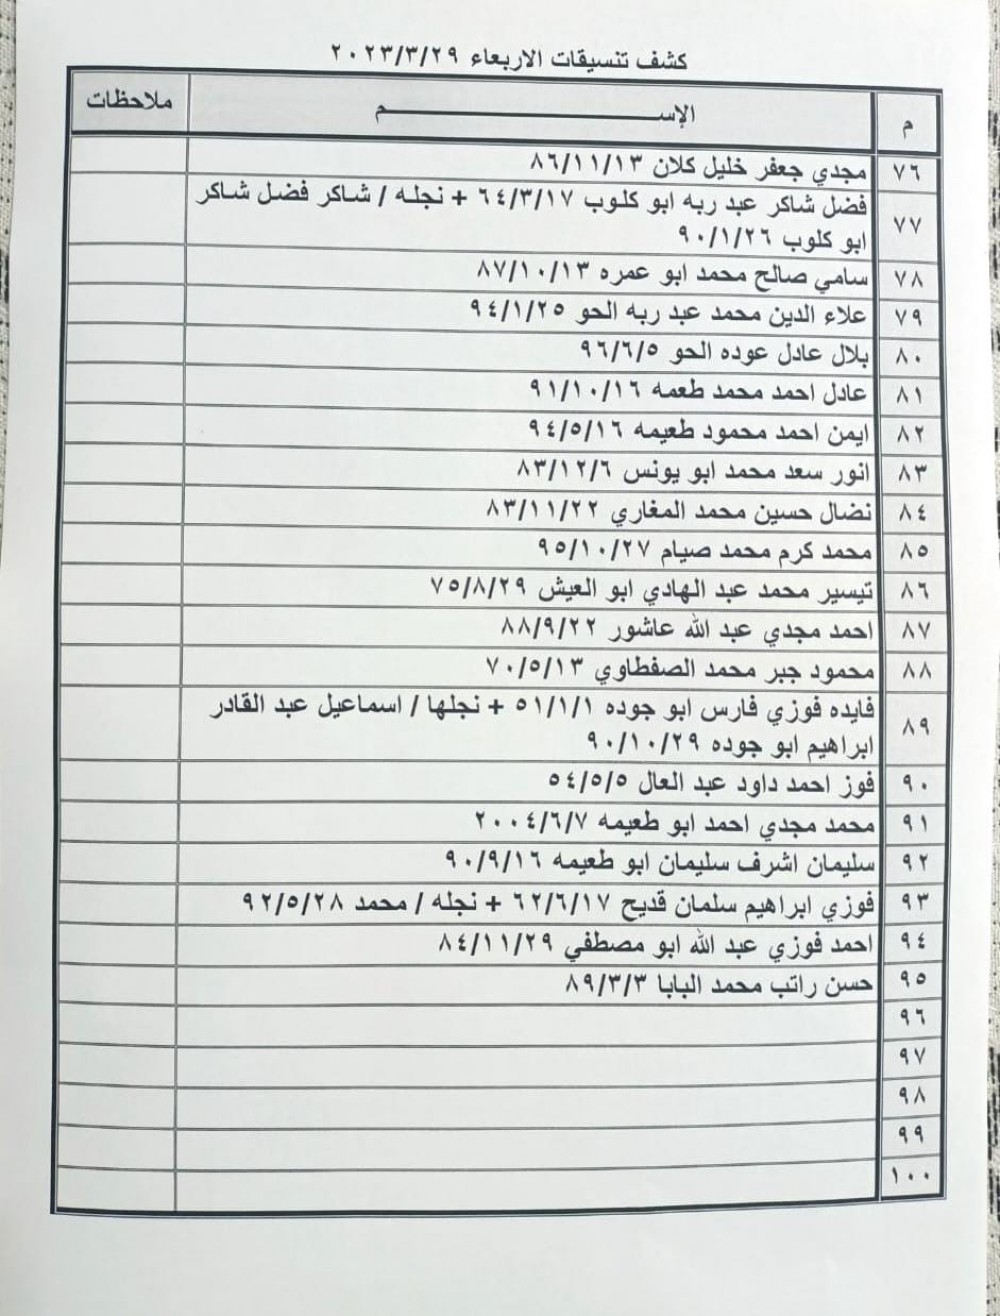 كشف تنسيقات الاربعاء ٢٠٢٣/٣/٢٩
م الإســـــــــم ملاحظات
٧٦ مجدي جعفر خليل كلان ٨٦/١١/١٣
٧٧ فضل شاكر عبد ربه ابو كلوب ٦٤/٣/١٧ + نجله / شاكر فضل شاكر
ابو كلوب ٩٠/١/٢٦
٧٨ سامي صالح محمد ابو عمره ٨٧/١٠/١٣
٧٩ علاء الدين محمد عبد ربه الحو ٩٤/١/٢٥
٨٠ بلال عادل عوده الحو ٩٦/٦/٥
٨١ عادل احمد محمد طعمه ٩١/١٠/١٦
٨٢ ايمن احمد محمود طعيمه ٩٤/٥/١٦
٨٣ انور سعد محمد ابو يونس ٨٣/١٢/٦
٨٤ نضال حسين محمد المغاري ٨٣/١١/٢٢
٨٥ محمد كرم محمد صيام ٩٥/١٠/٢٧
٨٦ تيسير محمد عبد الهادي ابو العيش ٧٥/٨/٢٩
٨٧ احمد مجدي عبد الله عاشور ٨٨/٩/٢٢
٨٨ محمود جبر محمد الصفطاوي ٧٠/٥/١٣
٨٩ فايده فوزي فارس ابو جوده ٥١/١/١ + نجلها / اسماعيل عبد القادر
ابراهيم ابو جوده ٩٠/١٠/٢٩
٩٠ فوز احمد داود عبد العال ٥٤/٥/٥
٩١ محمد مجدي احمد ابو طعيمه ٢٠٠٤/٦/٧
٩٢ سليمان اشرف سليمان ابو طعيمه ٩٠/٩/١٦
٩٣ فوزي ابراهيم سلمان قديح ٦٢/٦/١٧ + نجله / محمد ٩٢/٥/٢٨
٩٤ احمد فوزي عبد الله ابو مصطفي ٨٤/١١/٢٩
٩٥ حسن راتب محمد البابا ٨٩/٣/٣
٩٦
٩٧
٩٨
٩٩
١٠٠